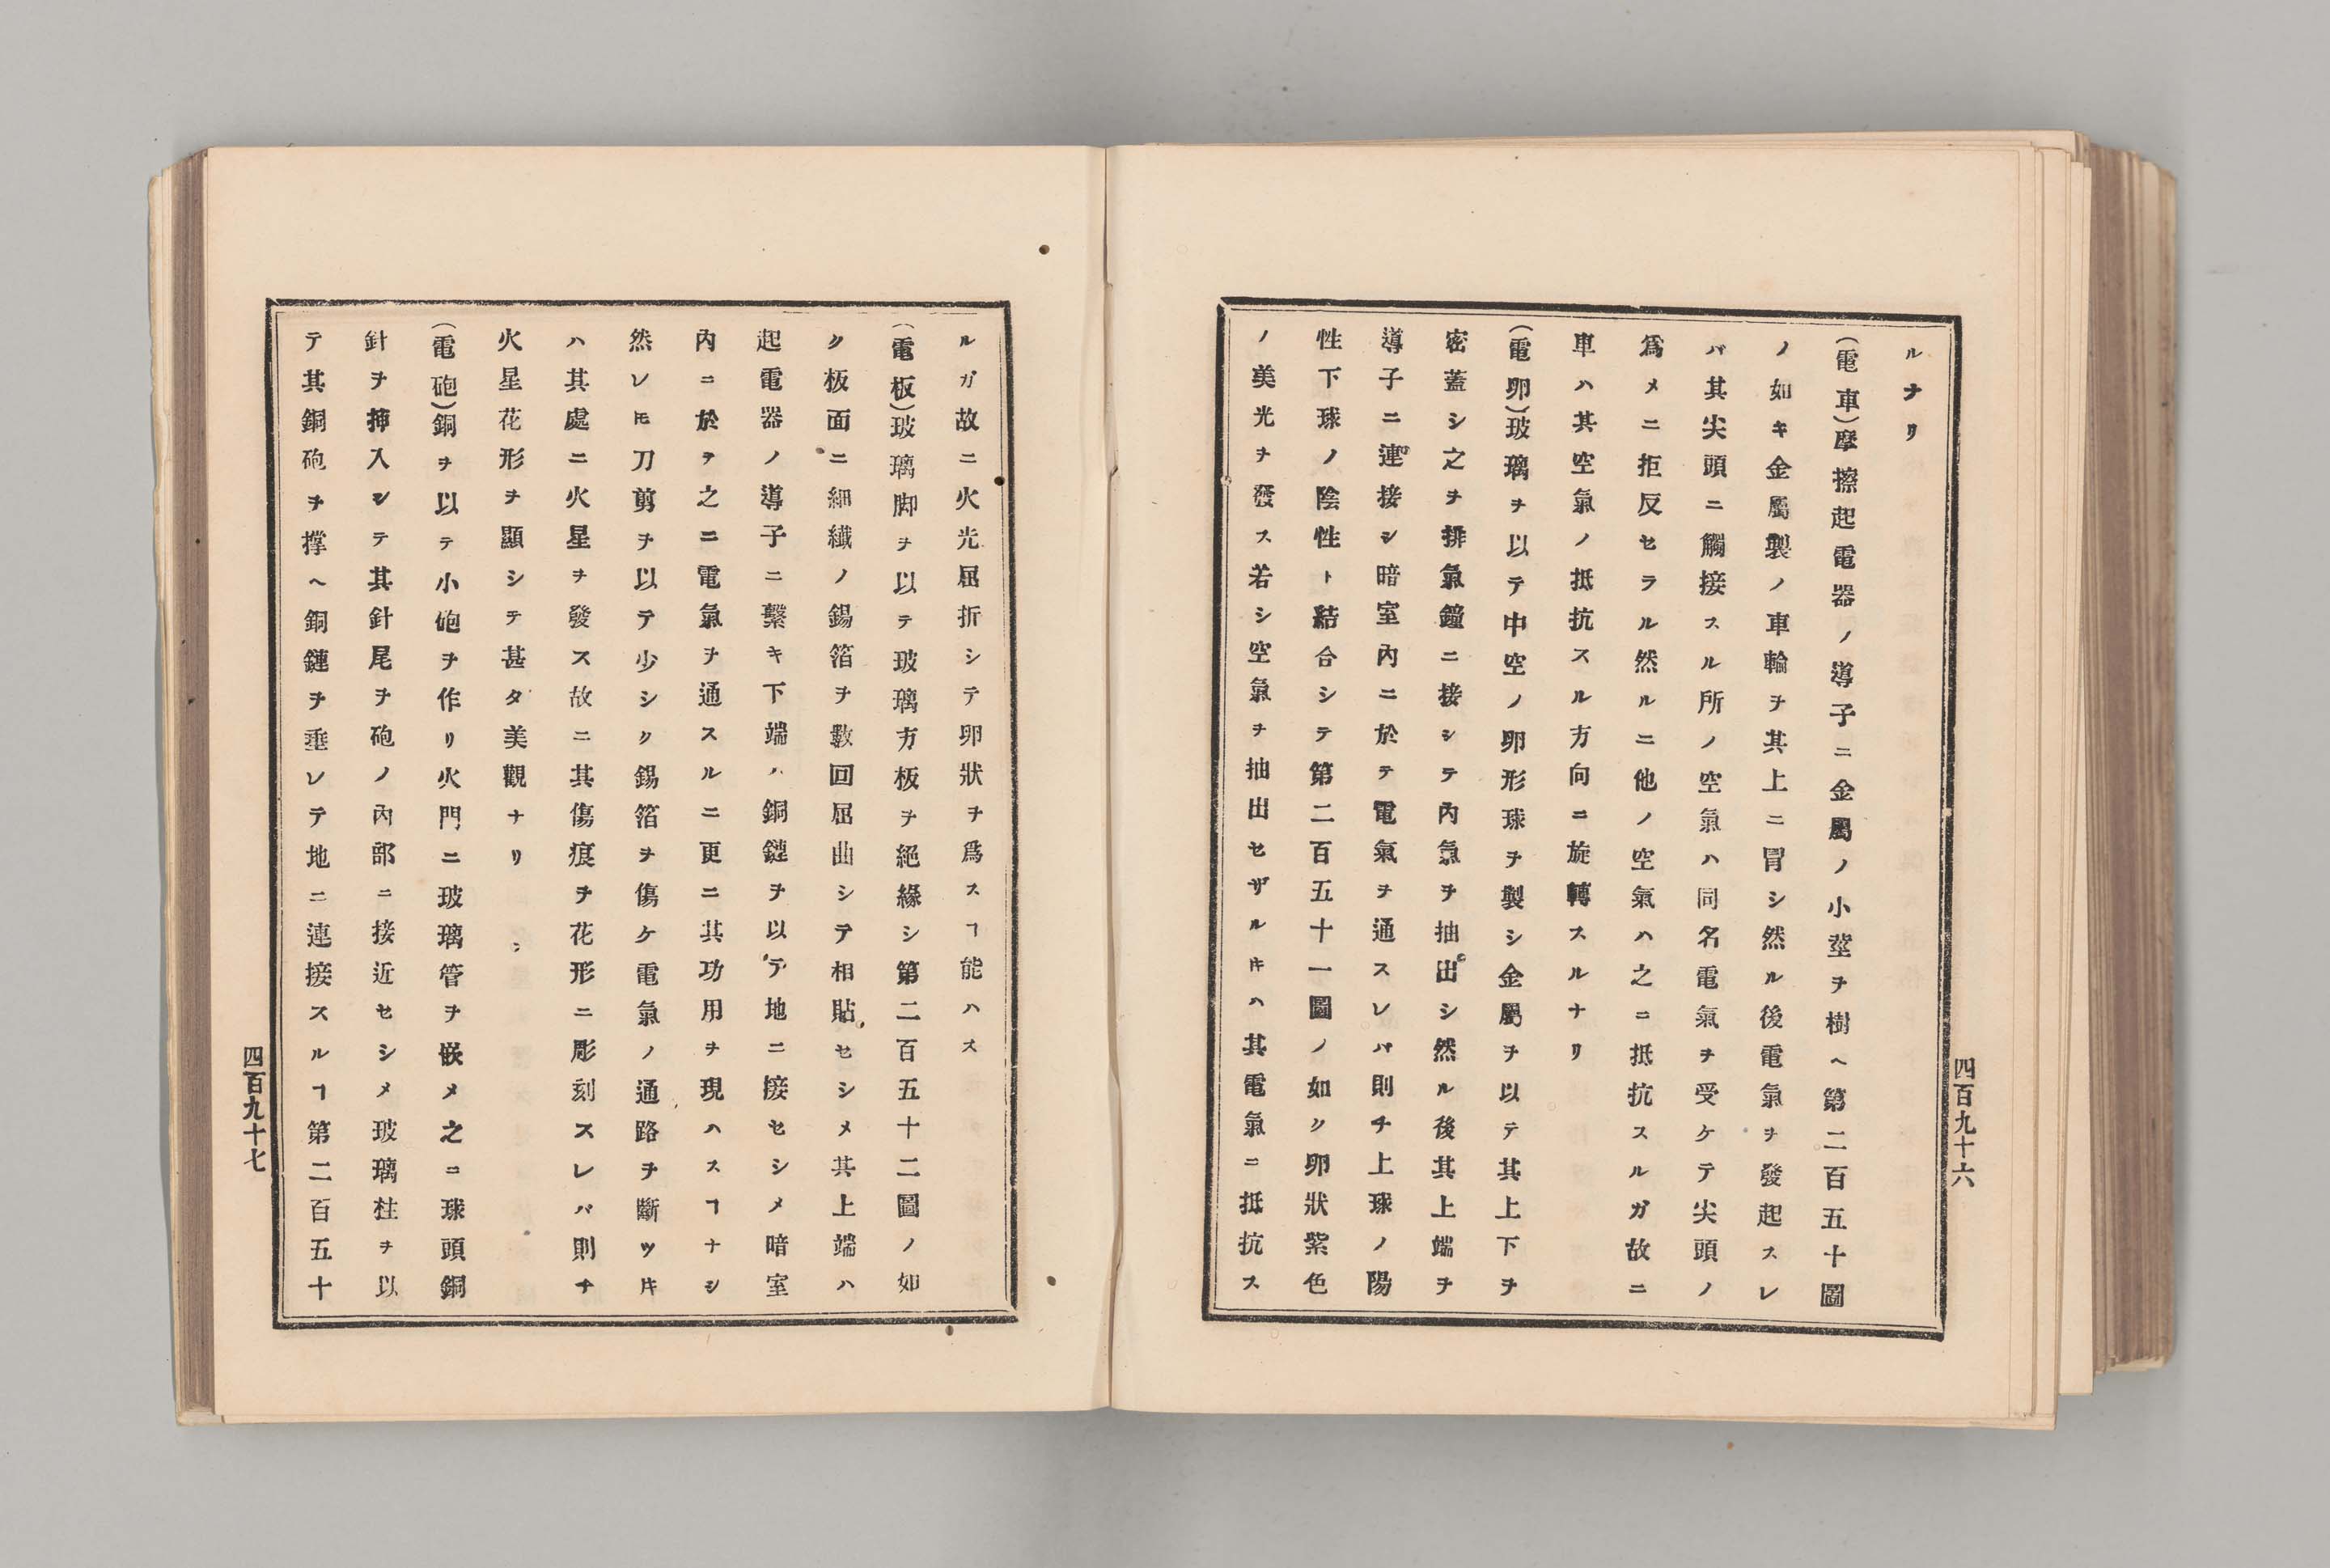 四百九十六
ルナリ
(電車)摩擦起電器ノ導子ニ金屬ノ小莖ヲ樹ヘ第二百五十圖
ノ如キ金屬製ノ車輪ヲ其上ニ冐シ然ル後電氣ヲ發起スレ
バ其尖頭ニ觸接スル所ノ空氣ハ同名電氣ヲ受ケテ尖頭ノ
爲メニ拒反セラル然ルニ他ノ空氣ハ之ニ抵抗スルガ故ニ
車ハ其空氣ノ抵抗スル方向ニ旋轉スルナリ
(電卵)玻璃ヲ以テ中空ノ卵形球ヲ製シ金屬ヲ以テ其上下ヲ
密蓋シ之ヲ排氣鐘ニ接シテ內氣ヲ抽出シ然ル後其上端ヲ
導子ニ連接シ暗室內ニ於テ電氣ヲ通スレバ則チ上球ノ陽
性下球ノ陰性ト結合シテ第二百五十一圖ノ如ク卵狀紫色
ノ美光ヲ發ス若シ空氣ヲ抽出セザルキハ其電氣ニ抵抗ス
ルガ故ニ火光屈折シテ卵狀ヲ爲スヿ能ハス
(電板)玻璃脚ヲ以テ玻璃方板ヲ絕緣シ第二百五十二圖ノ如
ク板面ニ細纎ノ錫箔ヲ數回屈曲シテ相貼セシメ其上端ハ
起電器ノ導子ニ繫キ下端ハ銅鏈ヲ以テ地ニ接セシメ暗室
內ニ於テ之ニ電氣ヲ通スルニ更ニ其功用ヲ現ハスヿナシ
然レ𪜈刀剪ヲ以テ少シク錫箔ヲ傷ケ電氣ノ通路ヲ斷ツキ
ハ其處ニ火星ヲ發ス故ニ其傷痕ヲ花形ニ彫刻スレバ則チ
火星花形ヲ顯シテ甚タ美觀ナリ
(電砲)銅ヲ以テ小砲ヲ作リ火門ニ玻璃管ヲ嵌メ之ニ球頭銅
針ヲ揷入シテ其針尾ヲ砲ノ內部ニ接近セシメ玻璃柱ヲ以
テ其銅砲ヲ撑ヘ銅鏈ヲ垂レテ地ニ連接スルヿ第二百五十
四百九十七